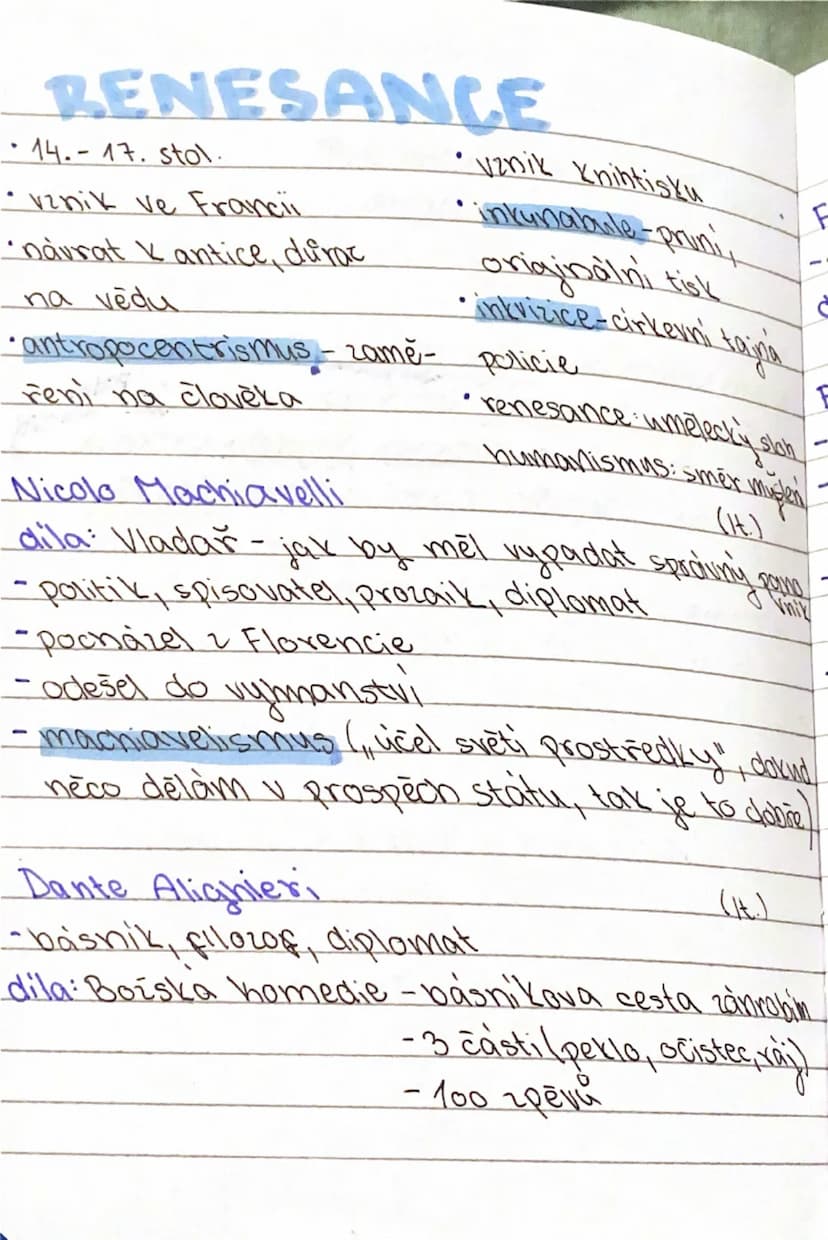 RENESANCE
· 14.- 17. stol.
· vznik ve Francii
· návrat k antice, důraz
na vědu
· antropocentrismus - zamě-
ření na člověka
· vznik knihtisku
· inkunabule - první,
originální tisk
· inkvizice - církevní tajná
policie
· renesance: umělecký sloh
humanismus: směr myšlení
Nicolo Machiavelli
(It.)
díla: Vladař - jak by měl vypadat správný pano
vník
- politik, spisovatel, prozaik, diplomat
- pocházel z Florencie
- odešel do vyhnanství
- machiavelismus („účel světí prostředky", dokud
něco dělám v prospěch státu, tak je to dobře)
Dante Alighieri
(It.)
- básník, filozof, diplomat
díla: Božská komedie - básníkova cesta záhrobím
- 3 části (peklo, očistec, ráj)
- 100 zpěvů